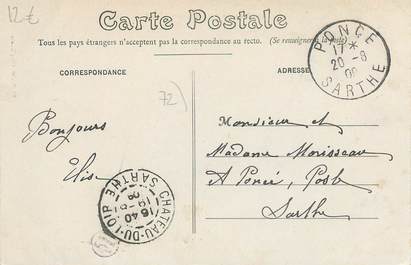 12€
Carte Postale
Tous les pays étrangers n'acceptent pas la correspondance au recto. (Se renseigner à la poste)
CORRESPONDANCE
ADRESSE
PONCÉ
17*
20 - 8
09
SARTHE
72
Bonjours
Elise
CHATEAU-DU-LOIR
16 40
SARTHE
Monsieur et
Madame Morisseau
A Poncé, Poste
Sarthe